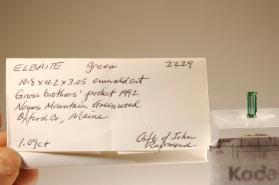 ELBAITE green 2229
10.8 x 4.2 x 3.05 emerald cut
Gross brothers' pocket 1992
Noyes Mountain Greenwood
Oxford Co, Maine
1.09ct
Gift of John
Raymond
Koda